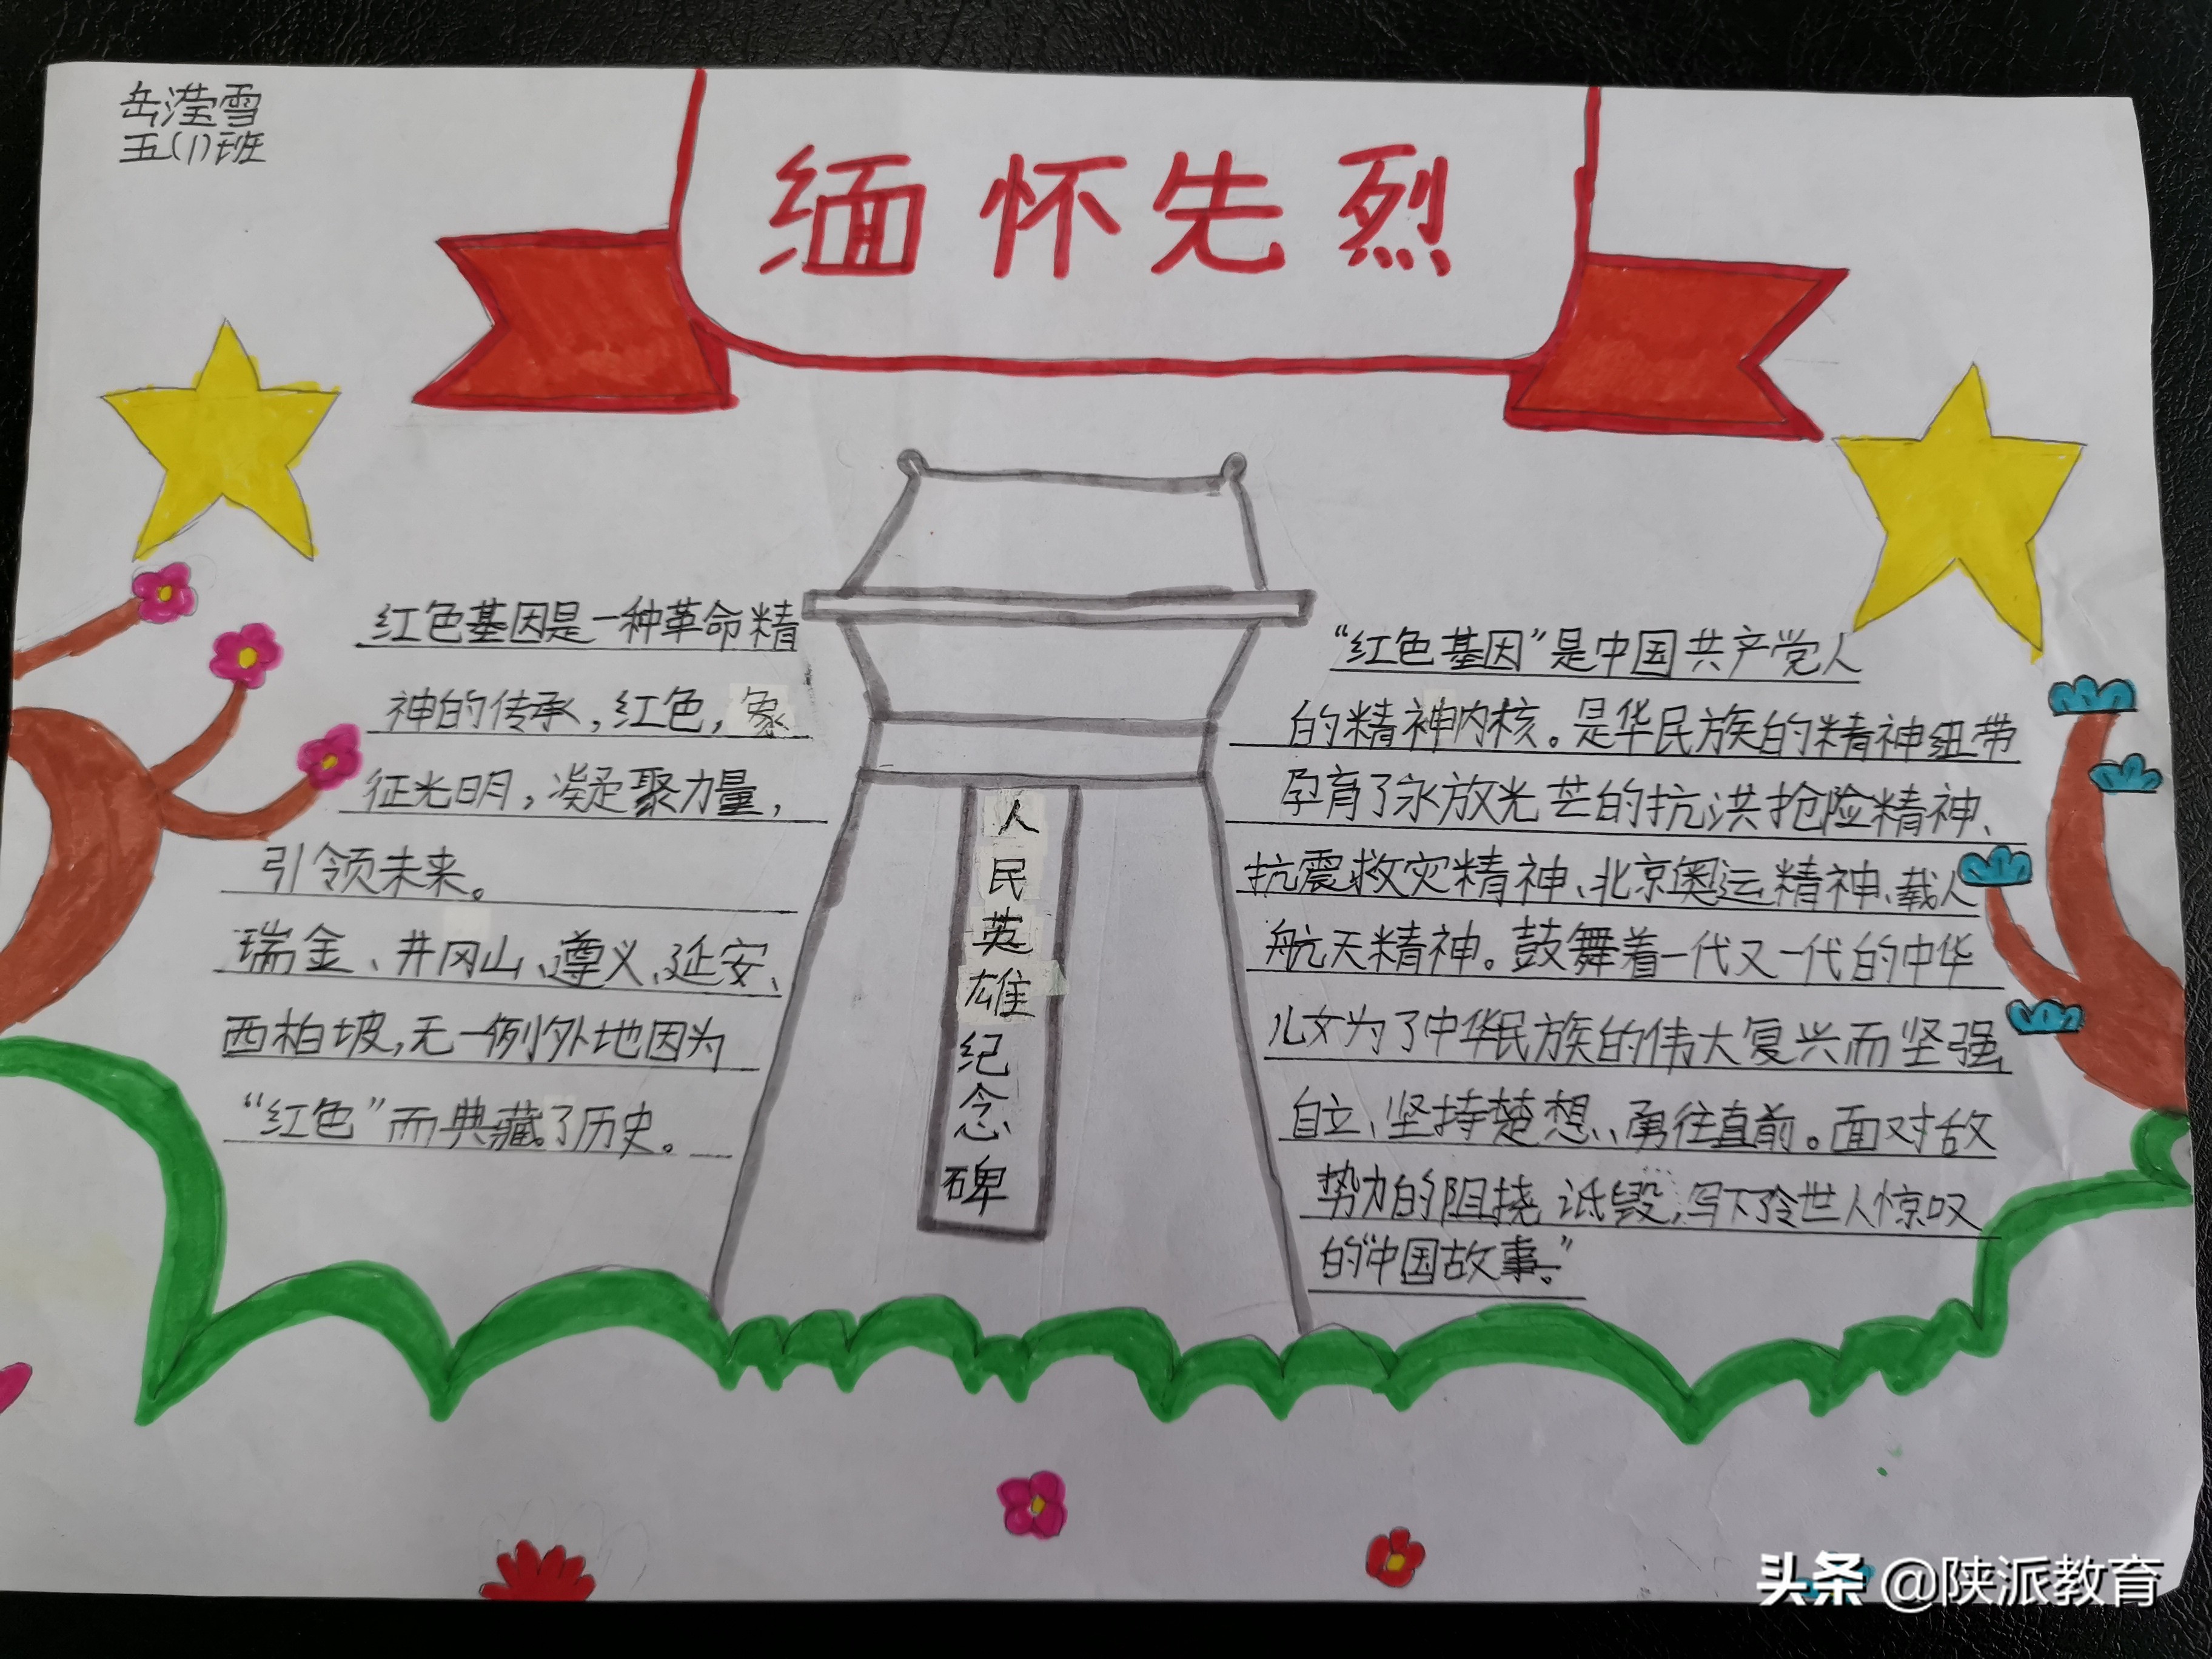 岳滢雪
五(1)班
缅怀先烈
红色基因是一种革命精
神的传承，红色，象
征光明，凝聚力量，
引领未来。
瑞金、井冈山、遵义、延安、
西柏坡，无一例外地因为
“红色”而典藏了历史。
人民英雄纪念碑
“红色基因”是中国共产党人
的精神内核。是华民族的精神纽带
孕育了永放光芒的抗洪抢险精神、
抗震救灾精神、北京奥运精神、载人
航天精神。鼓舞着一代又一代的中华
儿女为了中华民族的伟大复兴而坚强
自立、坚持楚想、勇往直前。面对敌
势力的阻挠 诋毁，写下了令世人惊叹
的“中国故事。”
头条 @陕派教育